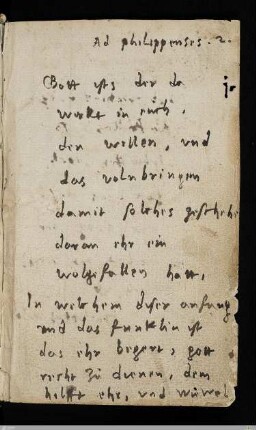 Ad philippenses . 2.
Gott ists der do
wirkt in euch,
den willen, und
das volnbringen
damit solches geschehe
daran ehr ein
wolgefallen hatt,
In welchem diser anfang
und das funklin ist
das ehr begert, gott
recht zu dienen, dem
hilfft ehr, und